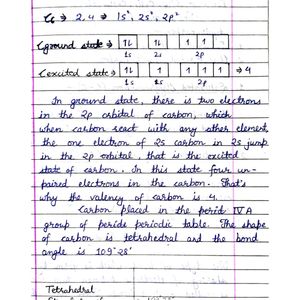 C₆ → 2,4 → 1s², 2s², 2p²
Ground state → 1↓ 1↓ 1 1
1s 2s 2p
Excited state → 1↓ 1 1 1 1 → 4
1s 2s 2p
In ground state, there is two electrons
in the 2p orbital of carbon, which
when carbon react with any other element,
the one electron of 2s carbon in 2s jump
in the 2p orbital, that is the excited
state of carbon. In this state four un-
paired electrons in the carbon. That's
why the valency of carbon is 4.
Carbon placed in the period IV A
group of peride periodic table. The shape
of carbon is tetrahedral and the bond
angle is 109° 28'
Tetrahedral